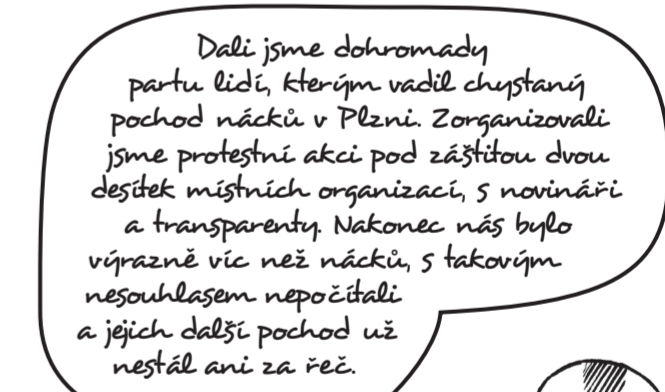 Dali jsme dohromady
partu lidí, kterým vadil chystaný
pochod nácků v Plzni. Zorganizovali
jsme protestní akci pod záštitou dvou
desítek místních organizací, s novináři
a transparenty. Nakonec nás bylo
výrazně víc než nácků, s takovým
nesouhlasem nepočítali
a jejich další pochod už
nestál ani za řeč.